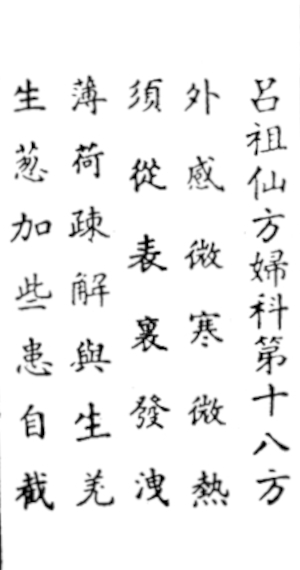 呂祖仙方婦科第十八方
外感微寒微熱
須從表裏發洩
薄荷疎解與生羌
生葱加些患自截